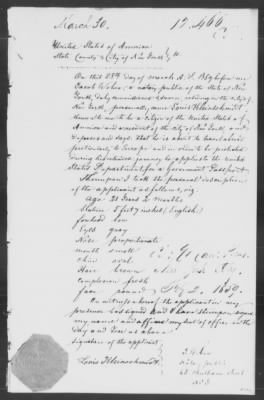 March 30.
12.466
United States of America
State County & City of New York
On this 28th day of March A. D. 1859 before me
Jacob Weber, a notary public of the State of New
York, duly commissioned and sworn, residing in the City of
New York, personally came Louis
to me to be a citizen of the United States of
America and a resident of the city of New York, and
deposes and says that he is about to travel abroad,
particularly to Europe and in view to be protected
during his intended journey he applies to the United
States Department for a Government Passport.
Thereupon I took the personal description
of the applicant as follows, viz:
Age 21 Years 2 months
Stature 5 feet 7 inches (English)
forehead low
Eyes gray
Nose proportionate
mouth small
chin oval
Hair brown
complexion fresh
face round
In witness whereof the applicant in my
presence has signed and I have thereupon signed
my name and affixed my seal of office on the
day and year as above
signature of the applicant
Louis
Notary public
N.Y.